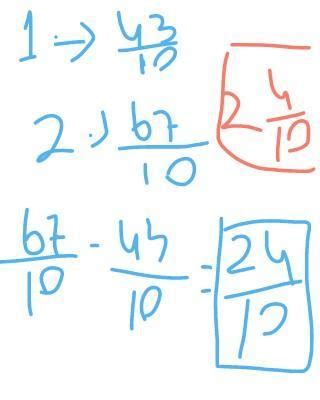 1 → 43/10
2 → 67/10
2 4/10
67/10 - 43/10 = 24/10